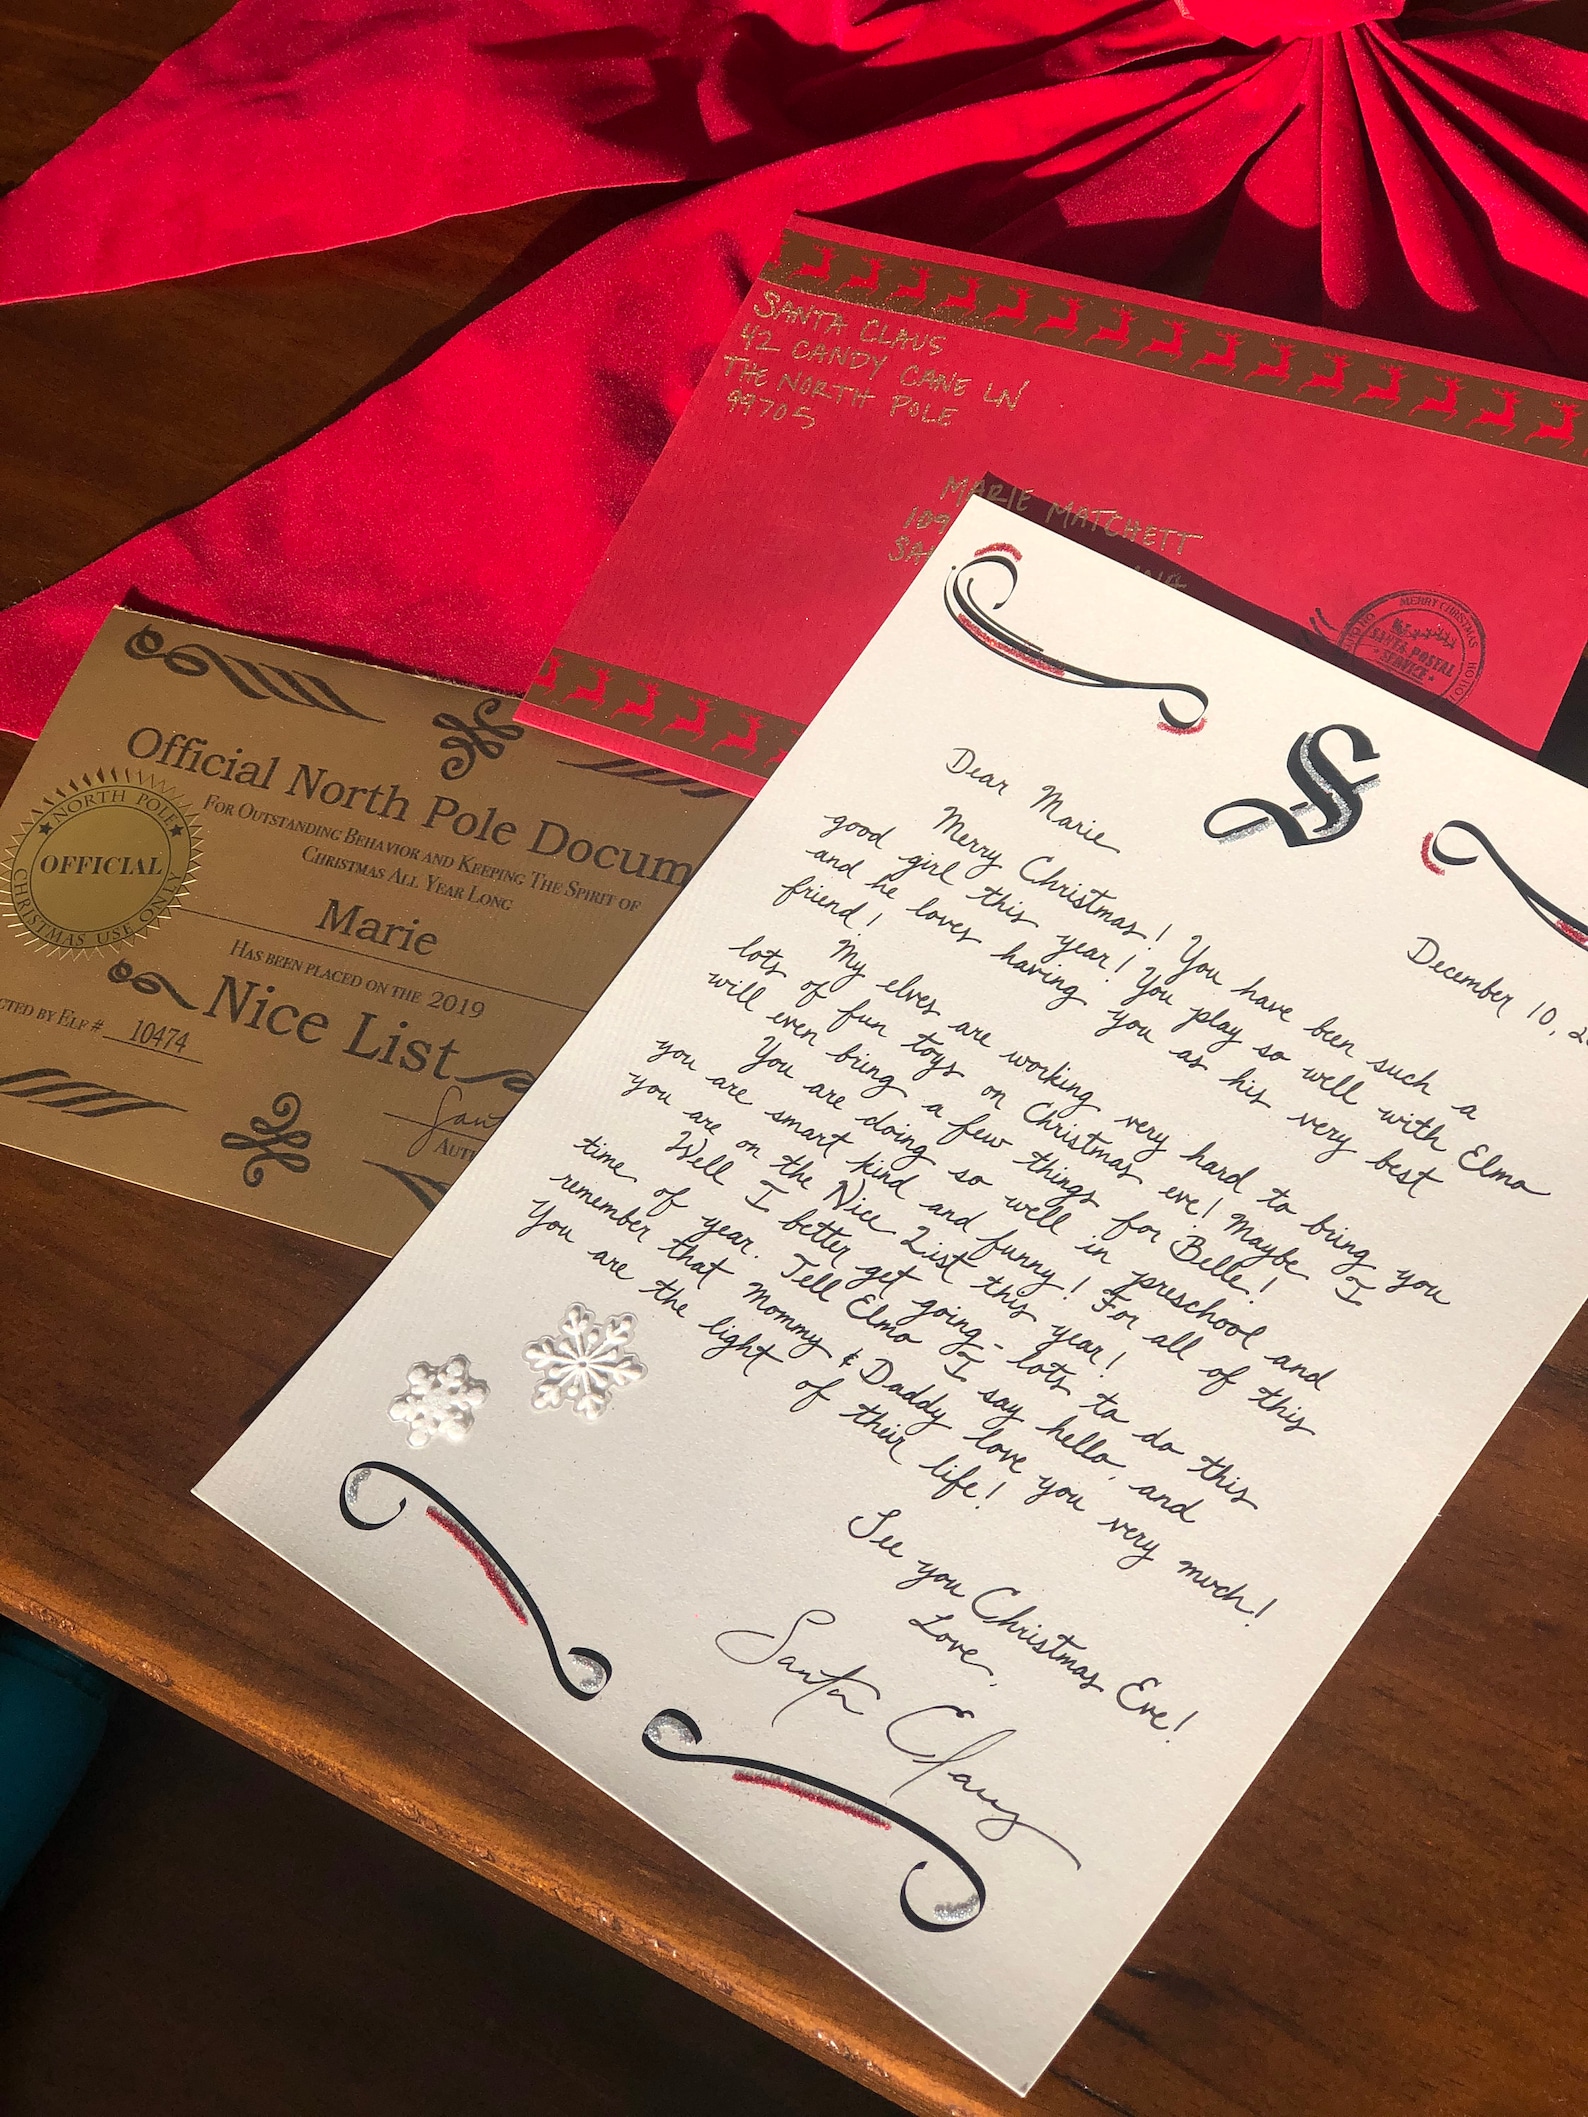 SANTA CLAUS
42 CANDY CANE LN
THE NORTH POLE
99705
MARIE MATCHETT
109
SA
MERRY CHRISTMAS HO HO HO
SANTA POSTAL
SERVICE
Official North Pole Docum
FOR OUTSTANDING BEHAVIOR AND KEEPING THE SPIRIT OF
CHRISTMAS ALL YEAR LONG
Marie
HAS BEEN PLACED ON THE 2019
Nice List
CTED BY ELF # 10474
Sant
AUT
NORTH POLE
OFFICIAL
CHRISTMAS USE ONLY
S
December 10, 2
Dear Marie
Merry Christmas! You have been such a
good girl this year! You play so well with Elmo
and he loves having you as his very best
friend!
My elves are working very hard to bring you
lots of fun toys on Christmas eve! Maybe I
will even bring a few things for Belle!
You are doing so well in preschool and
you are smart kind and funny! For all of this
you are on the Nice List this year!
Well I better get going - lots to do this
time of year. Tell Elmo I say hello, and
remember that Mommy & Daddy love you very much!
You are the light of their life!
See you Christmas Eve!
Love,
Santa Claus